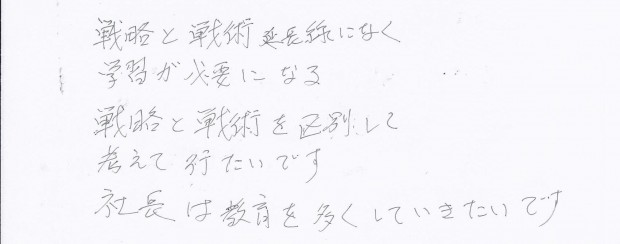 戦略と戦術延長線になく
学習が必要になる
戦略と戦術を区別して
考えて行たいです
社長は教育を多くしていきたいです